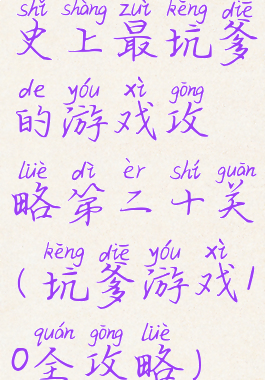 shǐ shàng zuì kēng diē
史上最坑爹
de yóu xì gōng
的游戏攻
lüè dì èr shí guān
略第二十关
kēng diē yóu xì
(坑爹游戏1
quán gōng lüè
0全攻略)